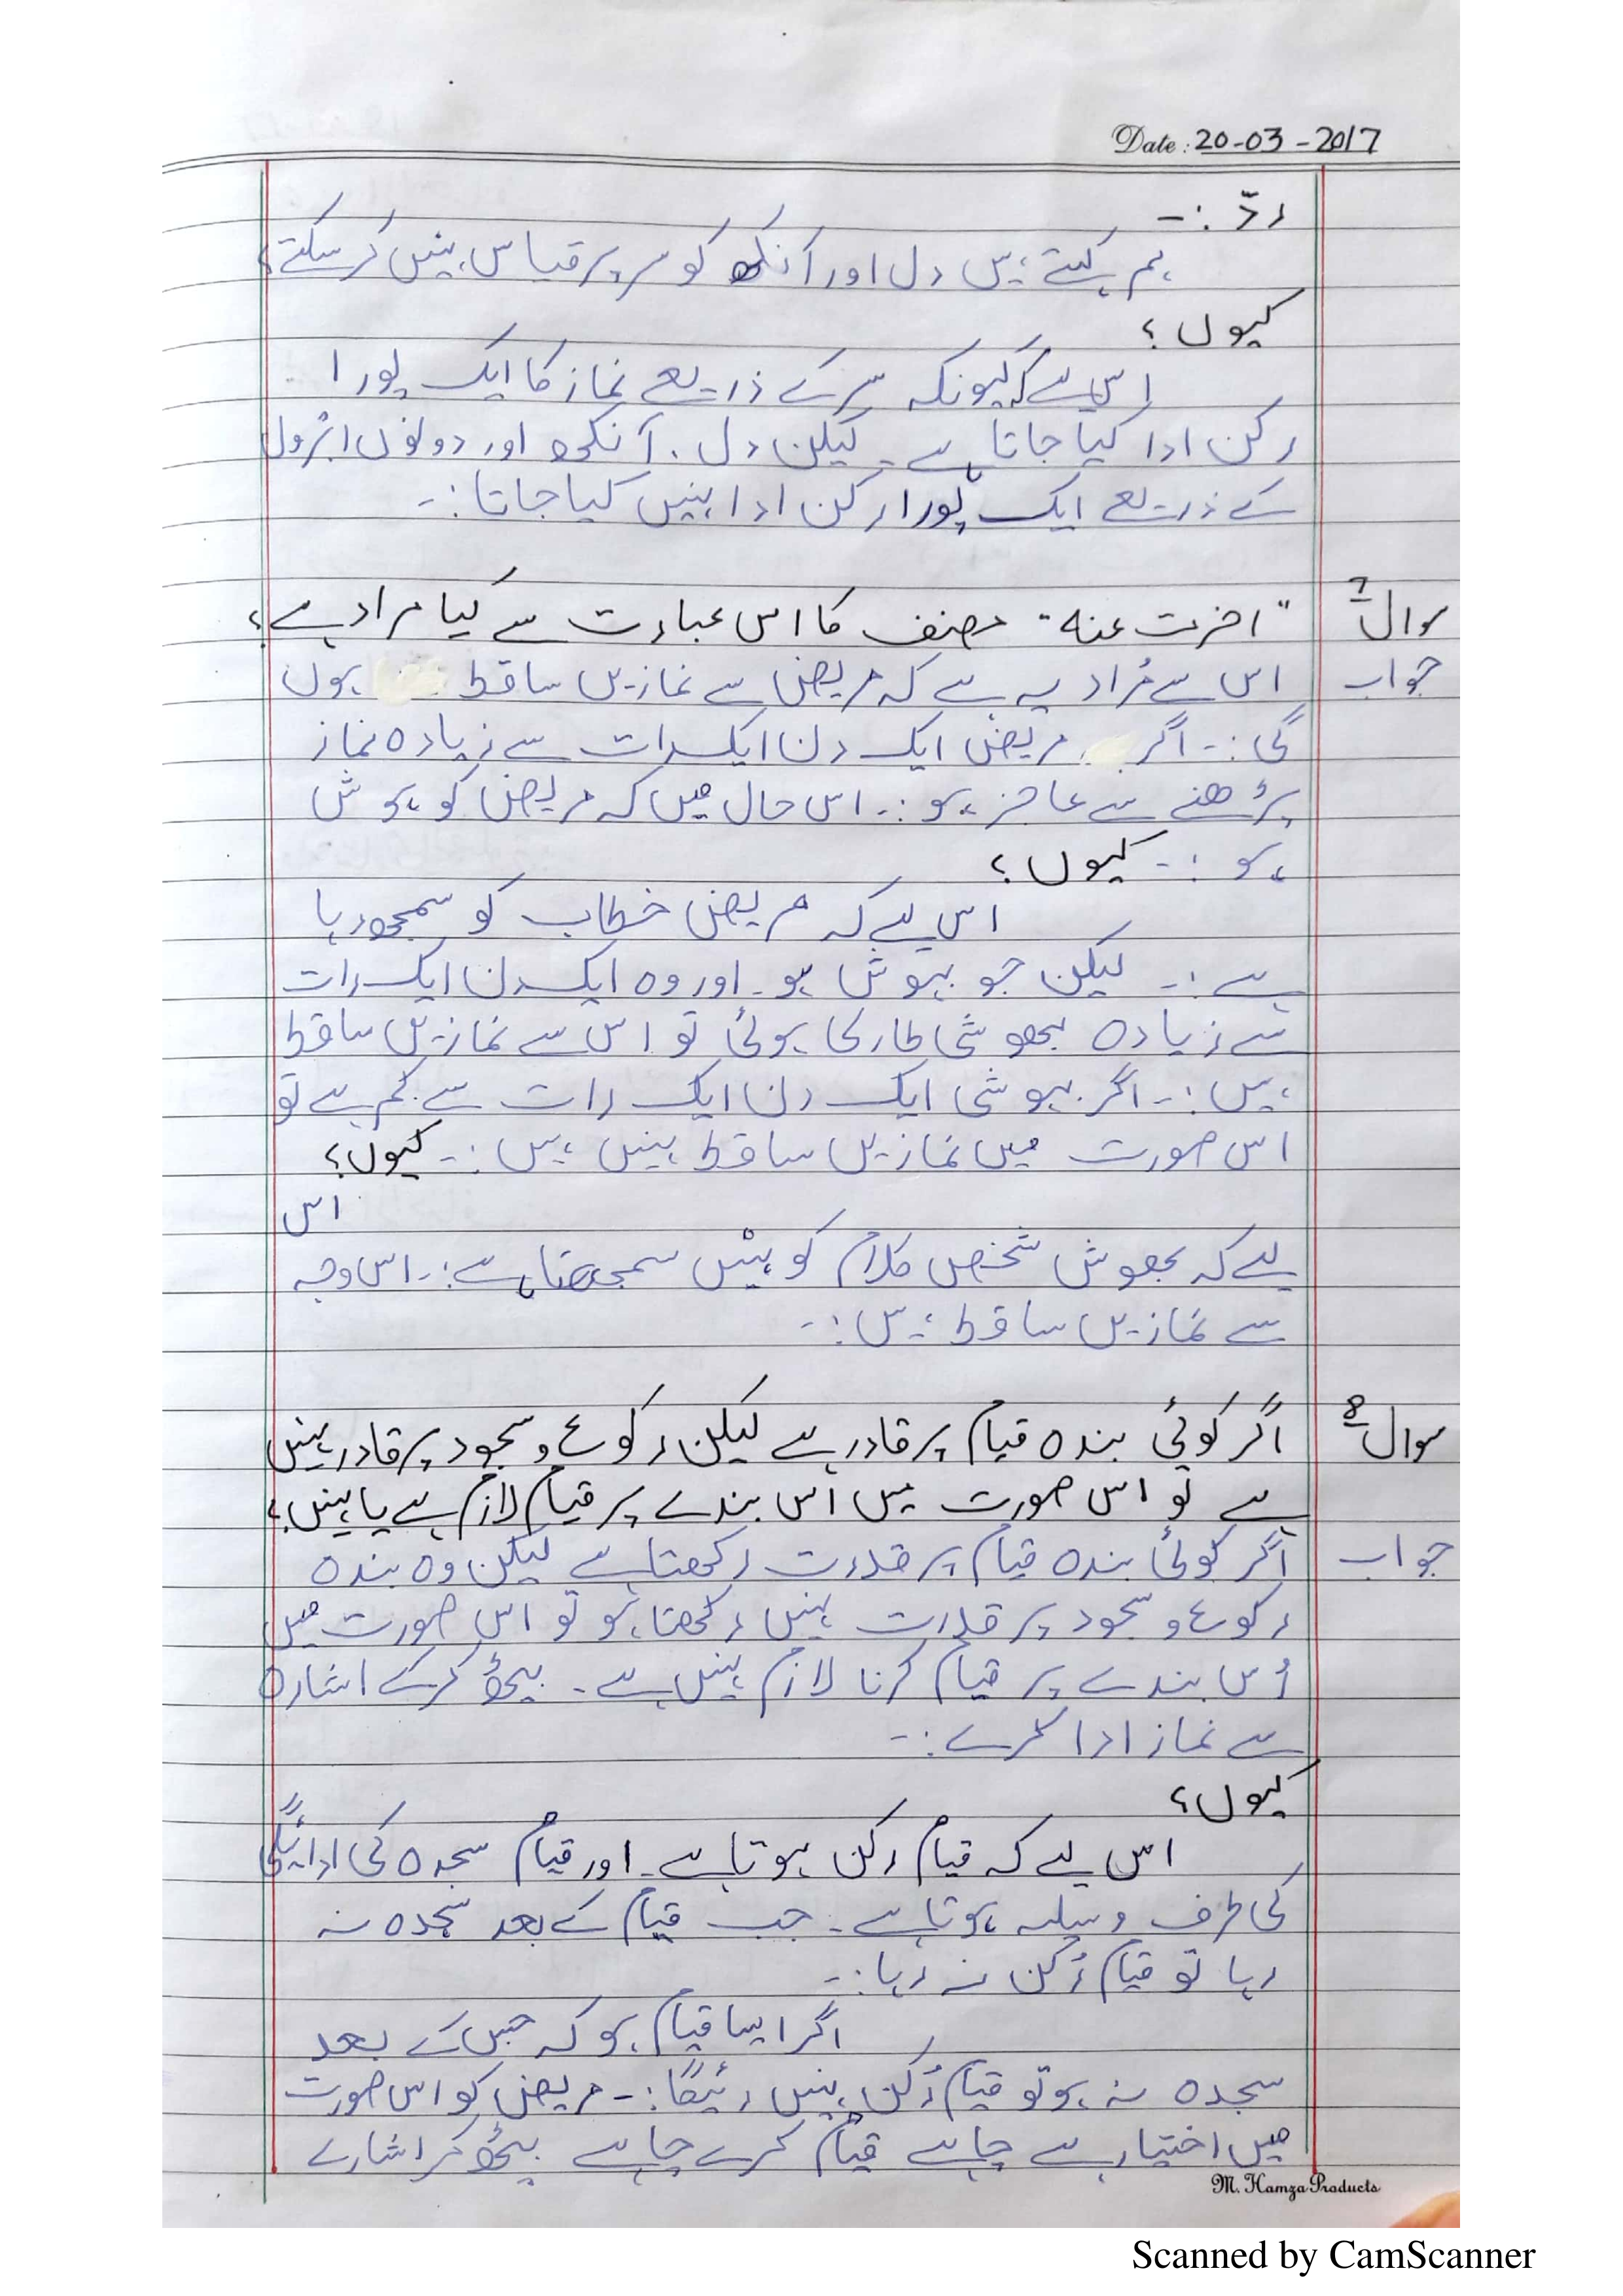 Date: 20-03-2017
ردّ :-
ہم کہتے ہیں دل اور آنکھ کو سر پر قیاس نہیں کر سکتے،
کیوں؟
اس لیے کہ کیونکہ سر کے ذریعے نماز کا ایک پورا
رکن ادا کیا جاتا ہے۔ لیکن دل، آنکھ اور دونوں ابرول
کے ذریعے ایک پورا رکن ادا نہیں کیا جاتا:-
سوال 7
"اخرت عنہ" مصنف کا اس عبارت سے کیا مراد ہے؟
جواب
اس سے مُراد یہ ہے کہ مریض سے نمازیں ساقط ہوں
گی:- اگر مریض ایک دن ایک رات سے زیادہ نماز
پڑھنے سے عاجز ہو:- اس حال میں کہ مریض کو ہوش
ہو:- کیوں؟
اس لیے کہ مریض خطاب کو سمجھ رہا
ہے:- لیکن جو بہوش ہو۔ اور وہ ایک دن ایک رات
سے زیادہ بھوشی طارکی ہوئی تو اس سے نمازیں ساقط
ہیں:- اگر بہوشی ایک دن ایک رات سے کم ہے تو
اس صورت میں نمازیں ساقط نہیں ہیں:- کیوں؟
اس
لیے کہ بھوش شخص کلام کو نہیں سمجھتا ہے:- اس وجہ
سے نمازیں ساقط ہیں:-
سوال 8
اگر کوئی بندہ قیام پر قادر ہے لیکن رکوع و سجود پر قادر نہیں
ہے تو اس صورت میں اُس بندے پر قیام لازم ہے یا نہیں؟
جواب
اگر کوئی بندہ قیام پر قدرت رکھتا ہے لیکن وہ بندہ
رکوع و سجود پر قدرت نہیں رکھتا ہو تو اس صورت میں
اُس بندے پر قیام کرنا لازم نہیں ہے۔ بیٹھ کر کے اشارہ
سے نماز ادا کرے:-
کیوں؟
اس لیے کہ قیام رکن ہوتا ہے۔ اور قیام سجدہ کی ادائیگی
کی طرف وسیلہ ہوتا ہے۔ جب قیام کے بعد سجدہ نہ
رہا تو قیام رُکن نہ رہا:-
اگر ایسا قیام ہو کہ جس کے بعد
سجدہ نہ ہو تو قیام رُکن نہیں رہیگا:- مریض کو اس صورت
میں اختیار ہے چاہے قیام کرے چاہے بیٹھ کر اشارے
M. Hamza Products
Scanned by CamScanner